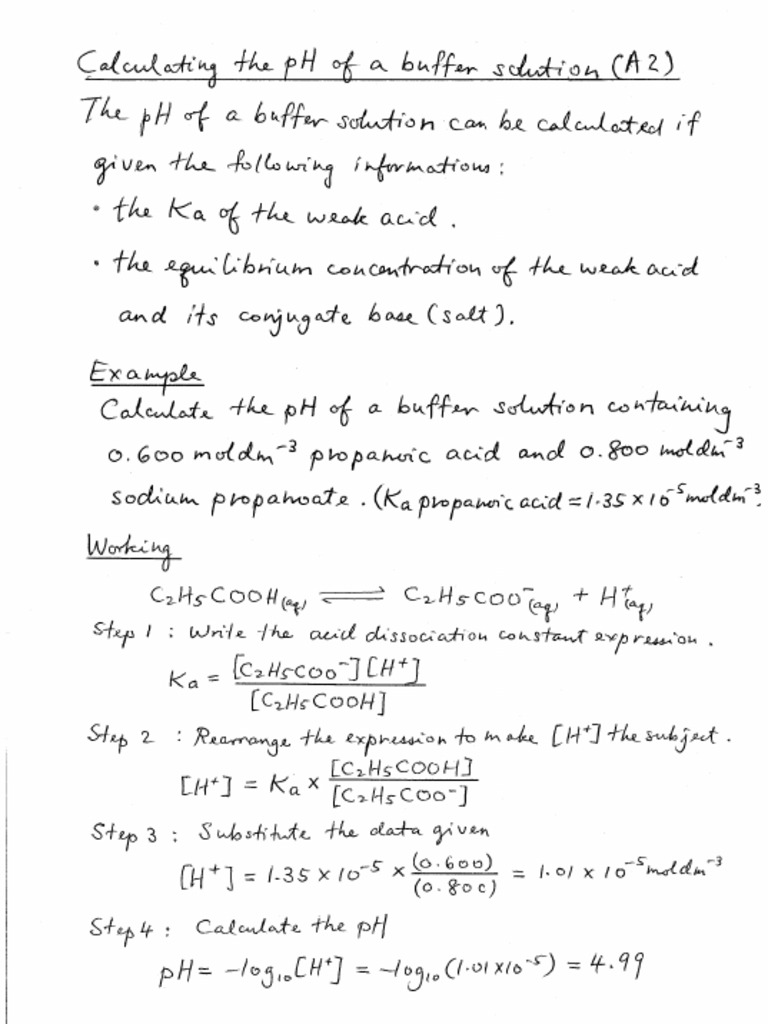 Calculating the pH of a buffer solution (A2)
The pH of a buffer solution can be calculated if
given the following informations:
• the Ka of the weak acid.
• the equilibrium concentration of the weak acid
and its conjugate base (salt).
Example
Calculate the pH of a buffer solution containing
0.600 moldm⁻³ propanoic acid and 0.800 moldm⁻³
sodium propanoate. (Ka propanoic acid = 1.35 × 10⁻⁵ moldm⁻³.
Working
C₂H₅COOH(aq) ⇌ C₂H₅COO⁻(aq) + H⁺(aq)
Step 1 : Write the acid dissociation constant expression.
Ka = [C₂H₅COO⁻][H⁺] / [C₂H₅COOH]
Step 2 : Rearrange the expression to make [H⁺] the subject.
[H⁺] = Ka × [C₂H₅COOH] / [C₂H₅COO⁻]
Step 3 : Substitute the data given
[H⁺] = 1.35 × 10⁻⁵ × (0.600) / (0.800) = 1.01 × 10⁻⁵ moldm⁻³
Step 4 : Calculate the pH
pH = -log₁₀[H⁺] = -log₁₀(1.01×10⁻⁵) = 4.99